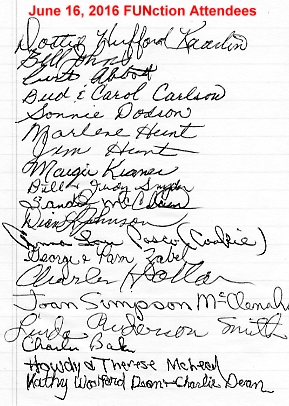 June 16, 2016 FUNction Attendees
Dottie Hufford
Bill
Curt Abbott
Bud & Carol Carlson
Sonnie Dodson
Marlene Hunt
Jim Hunt
Margie
Bill & Judy Snyder
Sandy McClain
Johnson
(Cookie)
George & Pam Zabel
Charles Hollar
Joan Simpson McClenahan
Linda Anderson Smith
Charlie Baker
Howdy & Therese McLeod
Kathy Woolford Dean & Charlie Dean